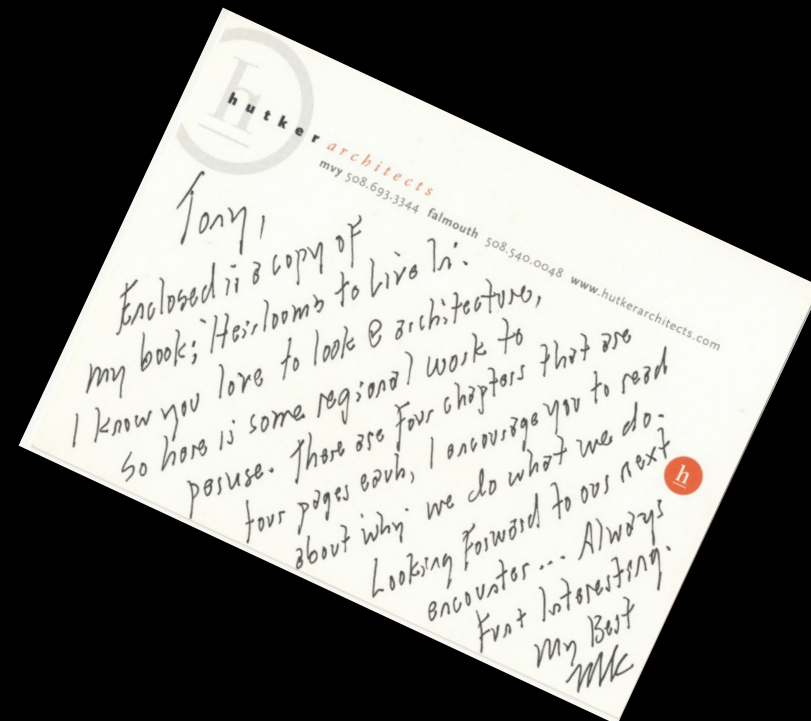 h
hutker architects
mvy 508.693.3344 falmouth 508.540.0048 www.hutkerarchitects.com
Tony,
Enclosed is a copy of
my book; 'Heirlooms to Live In'.
I know you love to look @ architecture,
so here is some regional work to
peruse. There are four chapters that are
four pages each, I encourage you to read
about 'why' we do what we do.
Looking forward to our next
encounter... Always
Fun + Interesting.
My Best
MK
h